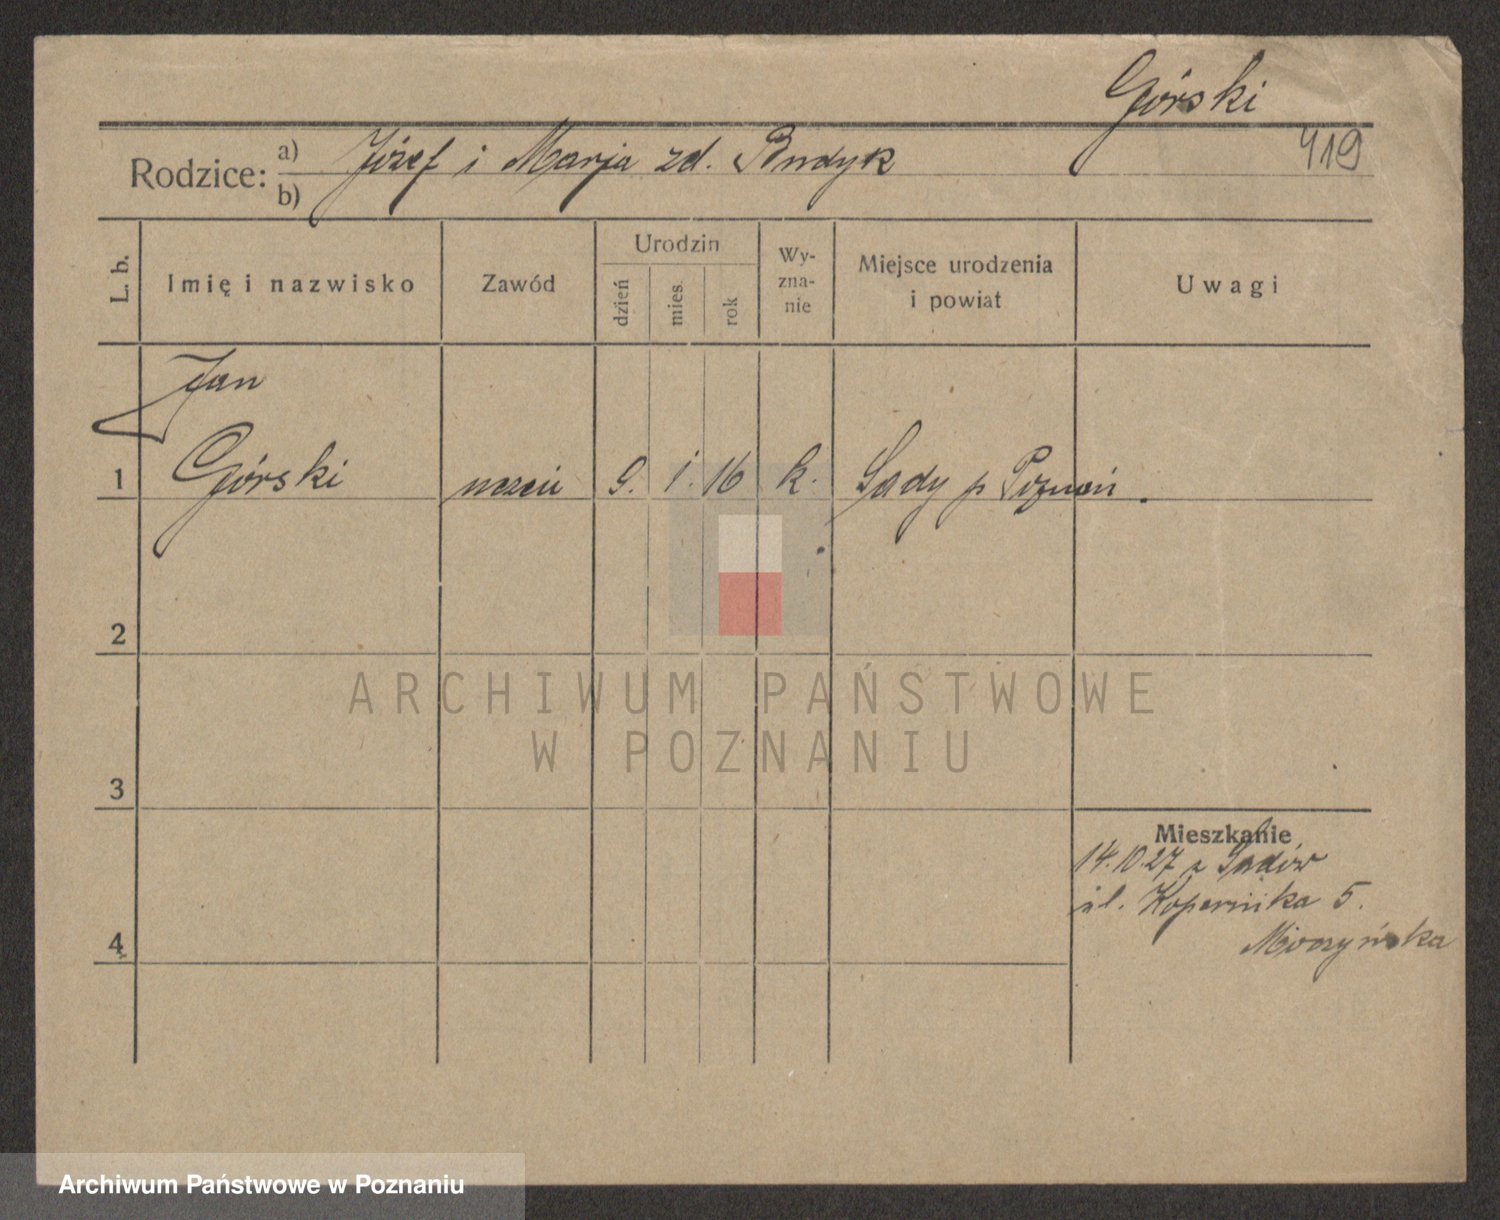 Górski
419
Rodzice: a) Józef i Marja zd. Budyk
b)
L. b.
Imię i nazwisko
Zawód
Urodzin
dzień
mies.
rok
Wy-
zna-
nie
Miejsce urodzenia
i powiat
Uwagi
Jan
1 Górski uczeń 9. 1. 16 k. Sady p Poznań.
2
ARCHIWUM PAŃSTWOWE
W POZNANIU
3
Mieszkanie
14.10.27 z Sadów
ul. Kopernika 5.
4
Archiwum Państwowe w Poznaniu